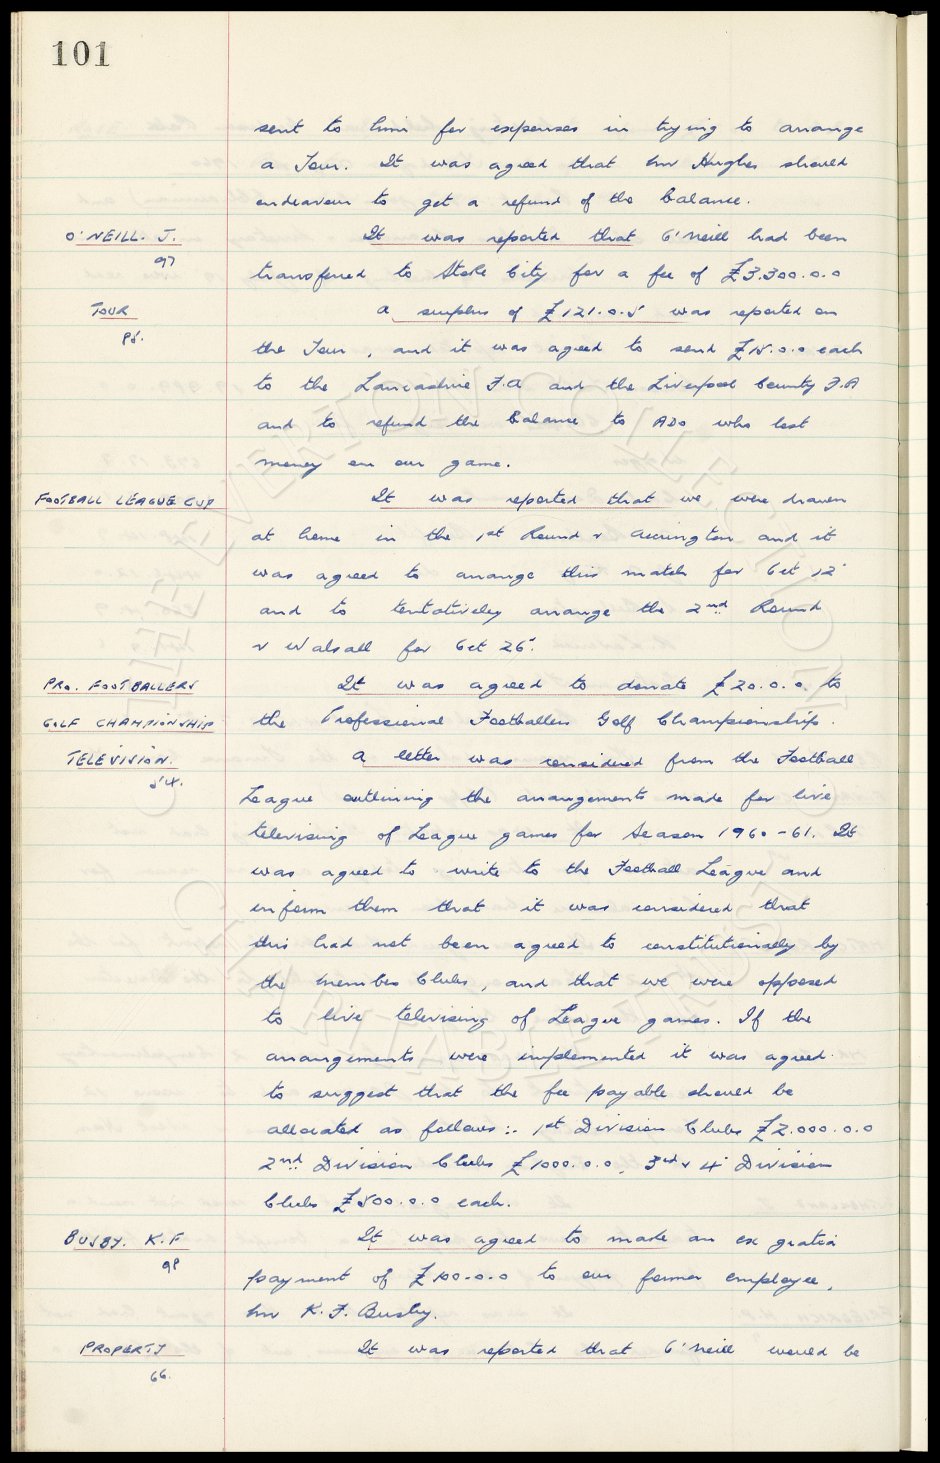 101
sent to him for expenses in trying to arrange
a Tour. It was agreed that Mr Hughes should
endeavour to get a refund of the balance.
O'NEILL. J. It was reported that O'Neill had been
97
transferred to Stoke City for a fee of £3.300.0.0
TOUR A surplus of £121.0.5 was reported on
98.
the Tour, and it was agreed to send £15.0.0 each
to the Lancashire F.A and the Liverpool County F.A
and to refund the balance to ADO who lost
money on our game.
FOOTBALL LEAGUE CUP It was reported that we were drawn
at home in the 1st Round v Accrington and it
was agreed to arrange this match for Oct 12
and to tentativeley arrange the 2nd Round
v Walsall for Oct 26.
PRO. FOOTBALLERS It was agreed to donate £20.0.0. to
GOLF CHAMPIONSHIP the Professional Footballers Golf Championship.
TELEVISION. A letter was considered from the Football
54.
League outlining the arrangements made for live
televising of League games for Season 1960-61. It
was agreed to write to the Football League and
inform them that it was considered that
this had not been agreed to constitutionally by
the member Clubs, and that we were opposed
to live televising of League games. If the
arrangements were implemented it was agreed
to suggest that the fee payable should be
allocated as follows:- 1st Division Clubs £2.000.0.0
2nd Division Clubs £1000.0.0, 3rd & 4 Division
Clubs £500.0.0 each.
BUSBY. K.F It was agreed to made an ex gratia
98
payment of £100.0.0 to our former employee,
Mr K.F. Busby.
PROPERTY It was reported that O'Neill would be
66.